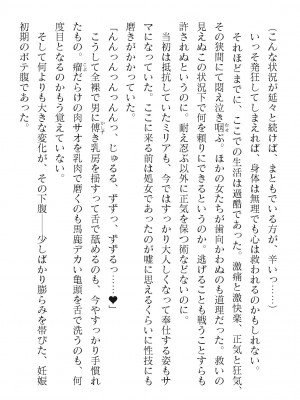 (こんな状況が延々と続けば、まともでいる方が、辛いっ……)
いっそ発狂してしまえれば、身体は無理でも心は救われるのかもしれない。
それほどまでに、ここでの生活は過酷であった。激痛と激快楽、正気と狂気、
その狭間にて悶え泣き咽ぶ。ほかの女たちが歯向かわぬのも道理だった。救いの
見えぬこの状況下で何を頼りにできるというのか。逃げることも戦うことすらも
許されぬというのに。耐え忍ぶ以外に正気を保つ術などないのに。
当初は抵抗していたミリアも、今ではすっかり大人しくなって奉仕する姿もサ
マになっていた。ここに来る前は処女であったのが嘘に思えるくらいに性技にも
磨きがかかっていた。
「んんっんっんっんんっ、じゅるる、ずずっ、ずずるっ……♥」
こうして全裸で男に傅き乳房を揺すって舌で舐めるのも、今やすっかり手慣れ
たもの。瘤だらけの肉サオを乳肉で磨くのも馬鹿デカい亀頭を舌で洗うのも、何
度目となるのかもう覚えていない。
そして何よりも大きな変化が、その下腹――少しばかり膨らみを帯びた、妊娠
初期のボテ腹であった。